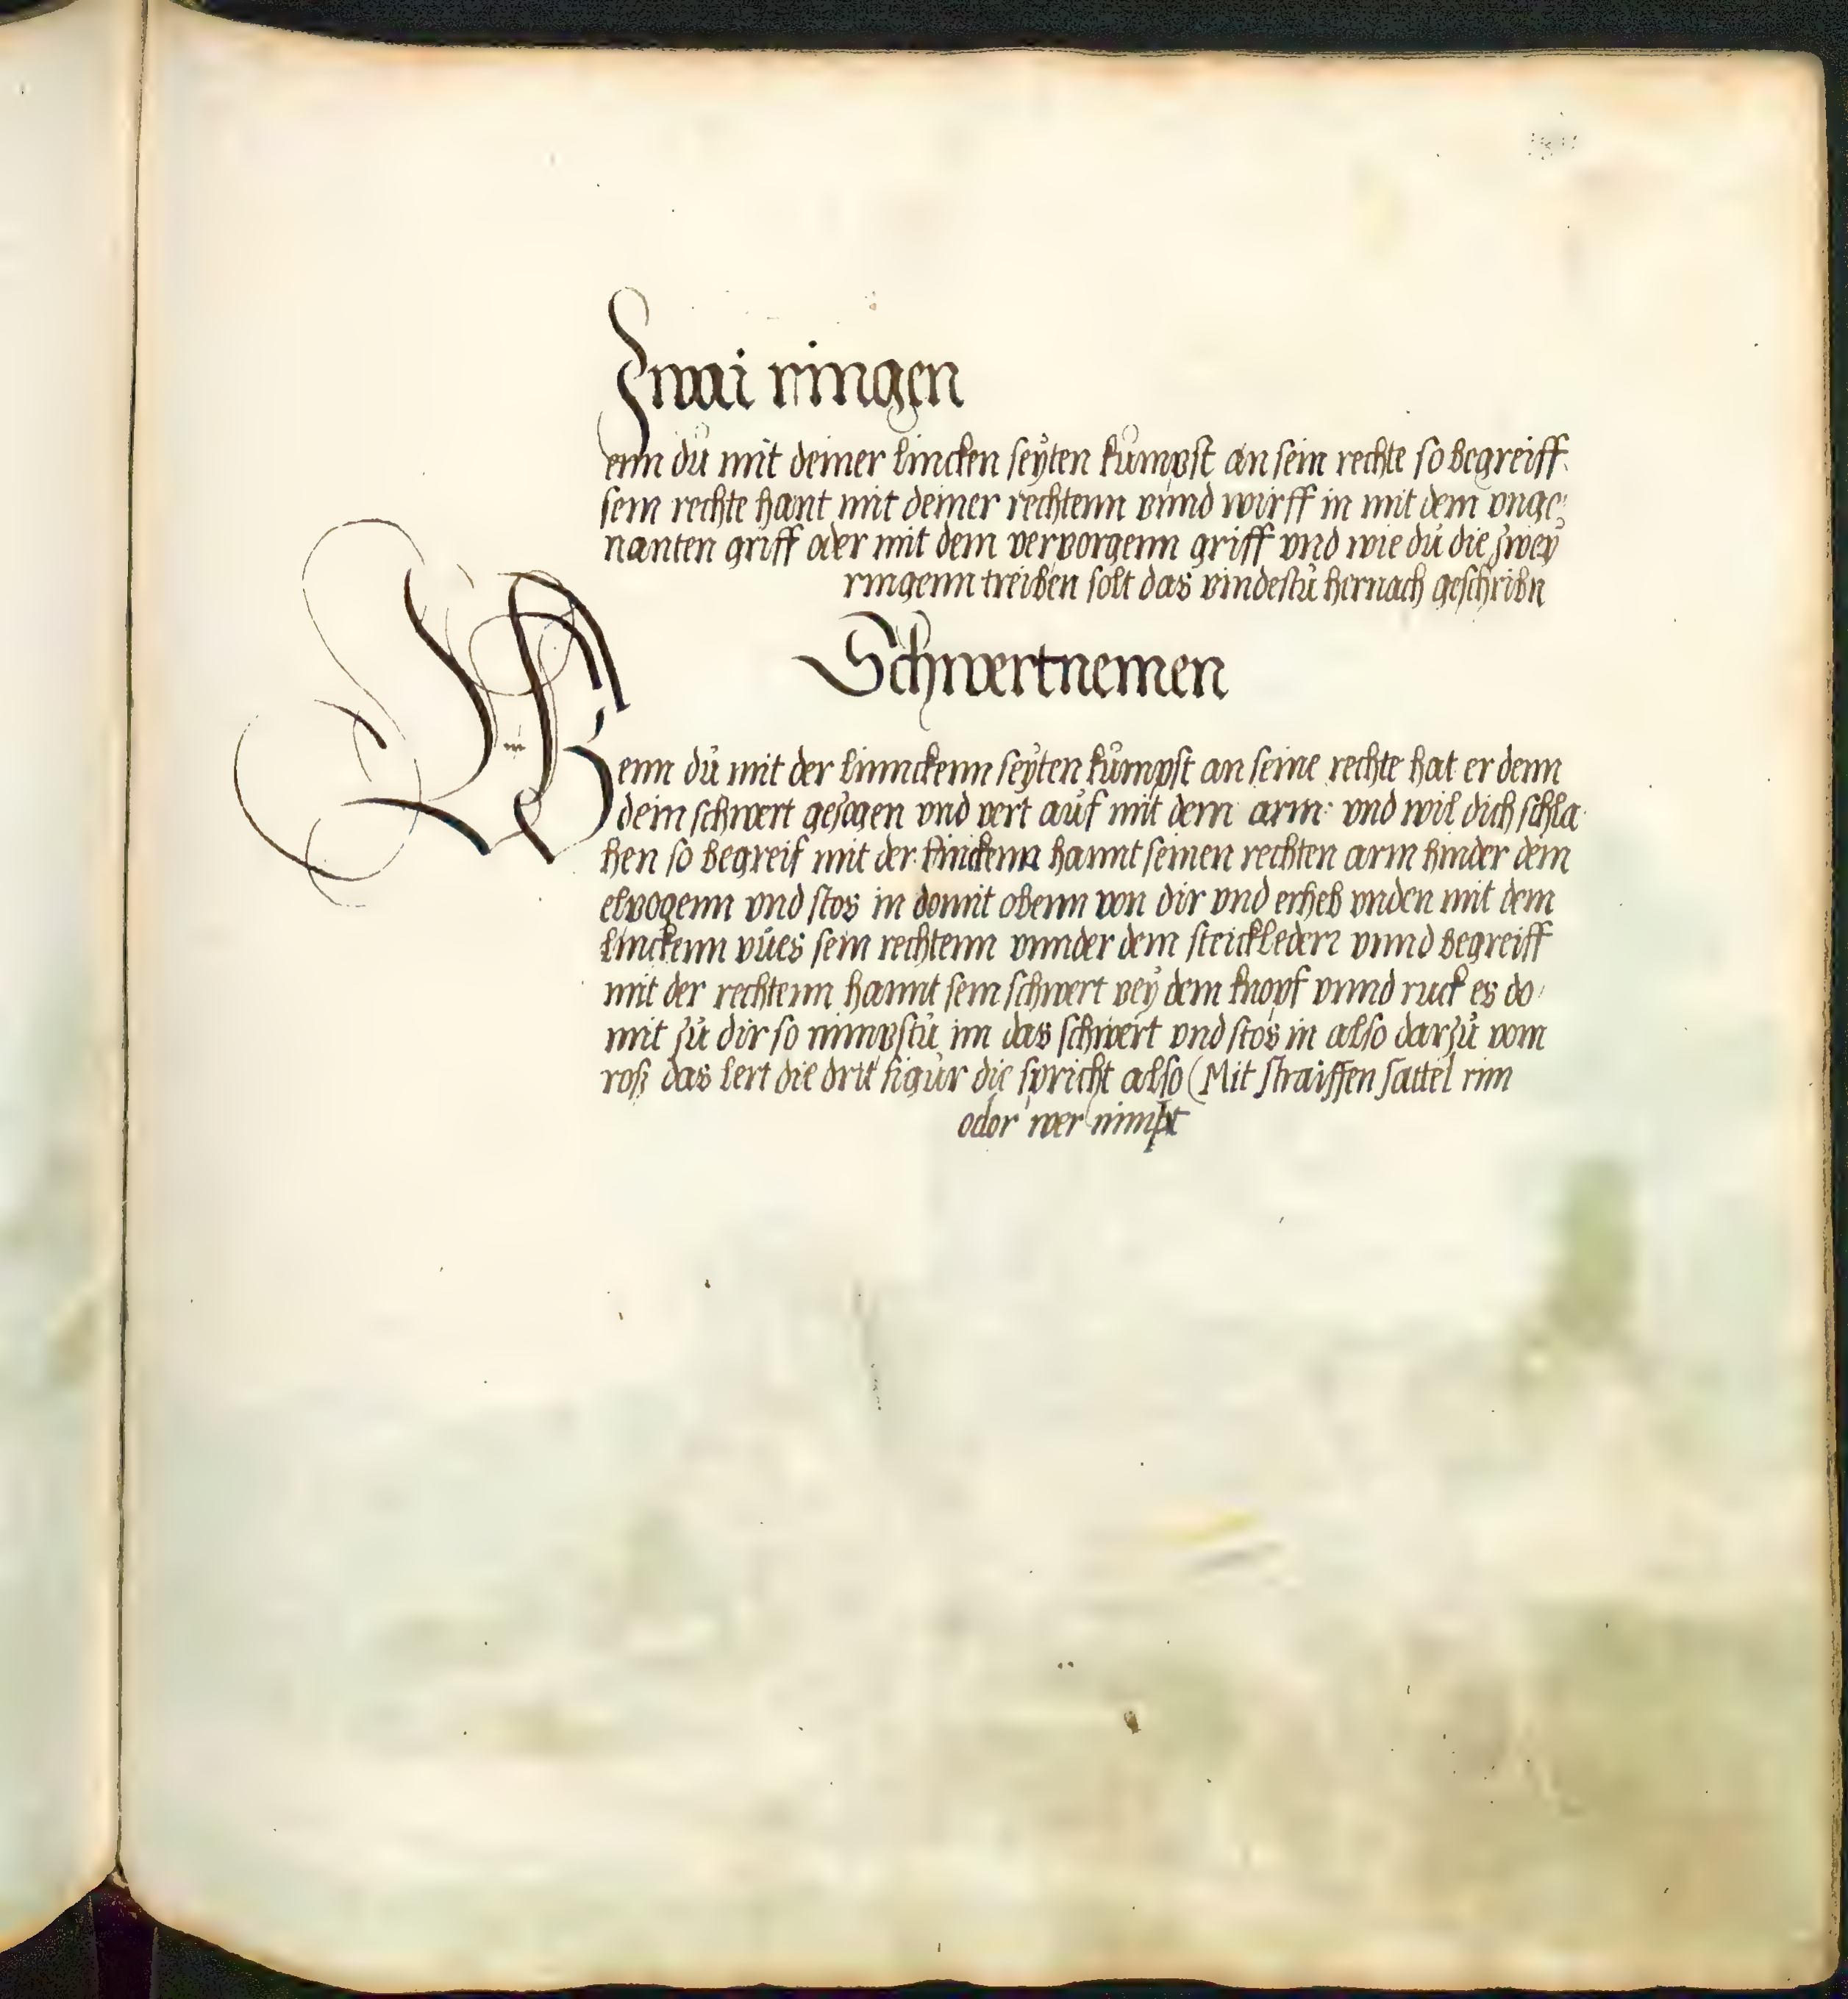 Zwai ringen
enn dů mit deiner lincken seÿten kůmpst an sein rechte so begreiff
sein rechte hant mit deiner rechtenn vnnd wirff in mit dem vnge¬
nanten griff oder mit dem verporgenn griff vnd wie dů die zweÿ
ringenn treiben solt das vindestů hernach geschribn
Schwertnemen
Wenn dů mit der linnckenn seÿten kůmpst an seine rechte hat er denn
dein schwert gezogen vnd vert aůf mit dem arm: vnd wil dich schla¬
hen so begreif mit der linckenn hannt seinen rechten arm hinder dem
elpogenn vnd stos in domit obenn von dir vnd erheb vnden mit dem
linckenn vůes sein rechtenn vnnder dem steickledern vnnd begreiff
mit der rechtenn hannt sein schwert peÿ dem knopf vnnd ruck es do¬
mit zů dir so nimpstů im das schwert vnd stos in also darzů vom
roß das lert die drit figůr die spricht also (Mit straiffen sattel rim
odor wer nimpt